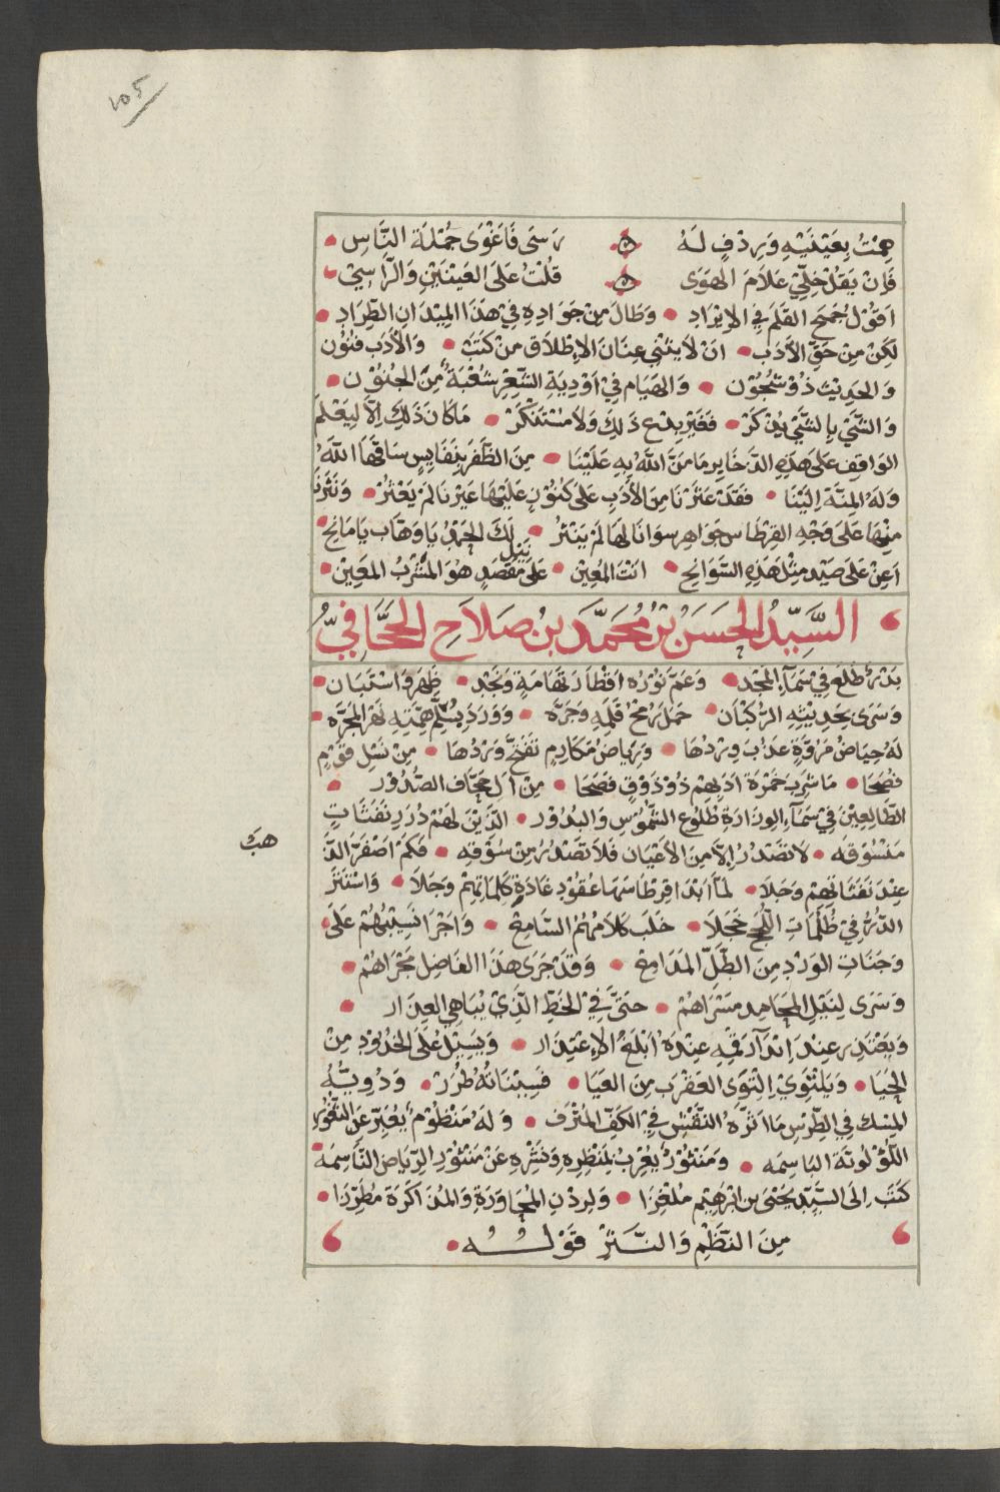 ١٠٥
هِمْتُ بِعَيْنَيْهِ وَرِدْفٍ لَهُ رَسَى فَاَغْوَى جُمْلَةَ النَّاسِ
فَاِنْ يَقُلْ خِلِّيْ عَلَامَ الهَوَى قُلْتُ عَلَى العَيْنَيْنِ وَالرَّاسِيْ
اَقُوْلُ جُمَحَ القَلَمُ فِي الاِيْرَادِ وَطَالَ مِنْ جَوَادِهِ فِيْ هَذَا المِيْدَانِ الطِّرَادِ
لَكِنْ مِنْ حَقِّ الأَدَبِ اَنْ لاَ يَنْثَنِيْ عِنَانَ الاِطْلَاقِ مِنْ كَثَبْ وَالأَدَبُ فُنُوْن
وَالحَدِيْثُ ذُوْ شُجُوْن وَالهَيَام فِيْ اَوْدِيَةِ الشِّعْرِ شُعْبَةٌ مِنَ الجُنُوْن
وَالشَّيْ بِالشَّيْ يُذْكَرْ فَغَيْرُ بِدْعٍ ذَلِكَ وَلاَ مُسْتَنْكَرْ مَا كَانَ ذَلِكَ اِلاَّ لِيَعْلَمَ
الوَاقِف عَلَى هَذِهِ الذَّخَايِرِ مَا مَنَّ اللهُ بِهِ عَلَيْنَا مِنَ الظَّفَرِ بِنَفَايِسٍ سَاقَهَا اللهُ
وَلَهُ المِنَّة اِلَيْنَا فَقَدْ عَثَرْنَا مِنَ الأَدَبِ عَلَى كُنُوْزٍ عَلَيْهَا غَيْرُنَا لَمْ يَعْثُرْ وَنَثَرْنَا
مِنْهَا عَلَى وَجْهِ القِرْطَاسِ جَوَاهِر سِوَانَا لَهَا لَمْ يَنْثُرْ لَكَ الحَمْدُ يَا وَهَّاب يَا مَانِح
اَعِنْ عَلَى صَيْدِ مِثْلِ هَذِهِ السَّوَانِح اَنْتَ المُعِيْن عَلَى نَيْلِ مَقْصَدٍ هُوَ المَشْرَبُ المَعِيْن
السَّيِّدُ الحَسَنُ بْنُ مُحَمَّدَ بْنِ صَلاَحِ الحَجَّافِيُّ
بَدْرٌ طَلَعَ فِيْ سَمَآءِ المَجْد وَعَمَّ نُوْرُهُ اَقْطَارَ تَهَامَةٍ وَنَجْد ظَهَرَ وَاسْتَبَان
وَسَرَى بِحَدِيْثِهِ الرُّكْبَان حَمَلَ رُمْحَ قَلَمِهِ وَجَرَّه وَوَرَدَ بِسُلَّمِ هِمَّتِهِ نَهْرَ المَجَرَّه
لَهُ حِيَاضُ مُرُوَّةٍ عَذُبَ وِرْدُهَا وَرِيَاضُ مَكَارِمٍ تَفَتَّحَ وَرْدُهَا مِنْ نَسْلِ قَوْمٍ
فُصَحَا مَا شَرِبَ خَمْرَةَ اَدَبِهِمْ ذُوْ ذَوْقٍ فَصَحَا مِنْ آلِ حَجَّاف الصُّدُوْر
الطَّالِعِيْنَ فِيْ سَمَآءِ الوِزَارَةِ طُلُوْعَ الشُّمُوْسِ وَالبُدُوْر الَّذِيْنَ لَهُمْ دُرَرِ نَفَثَاتٍ
مَنْسُوْقَه لاَ تَصْدُرُ اِلاَّ مِنَ الأَعْيَان فَلاَ تَصْدُرُ مِنْ سُوْقِه فَكَمْ اَصْفَرَّ الدُّ
هبَّ
عِنْدَ نَفَثَاتِهِمْ وَجَلاَ لَمَّا اَبْدَا قِرْطَاسُهَا عُقُوْدَ غَادَةِ كَلِمَاتِهِمْ وَجَلاَ وَاسْتَتَرَ
الدُّرُّ فِيْ ظُلُمَاتِ اللُّجَجِ خَجَلاَ خَلَبَ كَلاَمُهُمُ السَّامِع وَاَجْرَا نَسِيْبُهُمْ عَلَى
وَجَنَاتِ الوَرْدِ مِنَ الطَّلِّ المَدَامِع وَقَدْ جَرَى هَذَا الفَاضِل مَجْرَاهُمْ
وَسَرَى لِنَيْلِ المَحَامِد مَسْرَاهُمْ حَتَّى فِيْ الخَطِّ الَّذِيْ يُبَاهِي العِذَار
وَيَعْتَذِر عِنْدَ اِبْدَآءِ رَقْمِهِ عِنْدَهُ اَبْلَغَ الاِعْتِذَار وَيَسِيْلُ عَلَى الخُدُوْدِ مِنَ
الحَيَا وَيَلْتَوِيْ اِلْتِوَى العَقْرَبِ مِنَ العَيَا فَسِيْنَاتُهُ طُرَرْ وَذُوِيَّهُ
المِسْك فِي الطِّرْسِ مَا اَثَّرَهُ النَّقْش فِيْ الكَفِّ المُتْرَف وَلَهُ مَنْظُوْمٌ يُعَبِّرُ عَنِ الثُّغُوْرِ
اللُّؤْلُوئِيَّةَ البَاسِمَه وَمَنْثُوْرٌ يُعْرِبُ لِمَنْظَرِهِ وَنَشْرِهِ عَنْ مَنْثُوْرِ الرِّيَاضِ النَّاسِمَه
كَتَبَ اِلَى السَّيِّدِ يَحْيَى بن اِبْرَهِيْمِ مُلْغِزَا وَلِرِدْنِ المُحَاوَرَةِ وَالمُذَاكَرَةِ مُطَرِّزَا
مِنَ النَّظْمِ وَالنَّثْرِ قَوْلُهُ